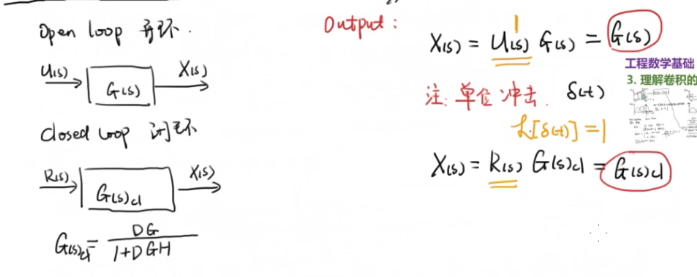 Open loop 开环.
U(s) G(s) X(s)
Closed loop 闭环
R(s) G(s)cl X(s)
G(s)cl = DG / 1+DGH
Output:
1
X(s) = U(s) G(s) = G(s)
注: 单位冲击. δ(t)
L[δ(t)] = 1
X(s) = R(s) G(s)cl = G(s)cl
工程数学基础
3. 理解卷积的